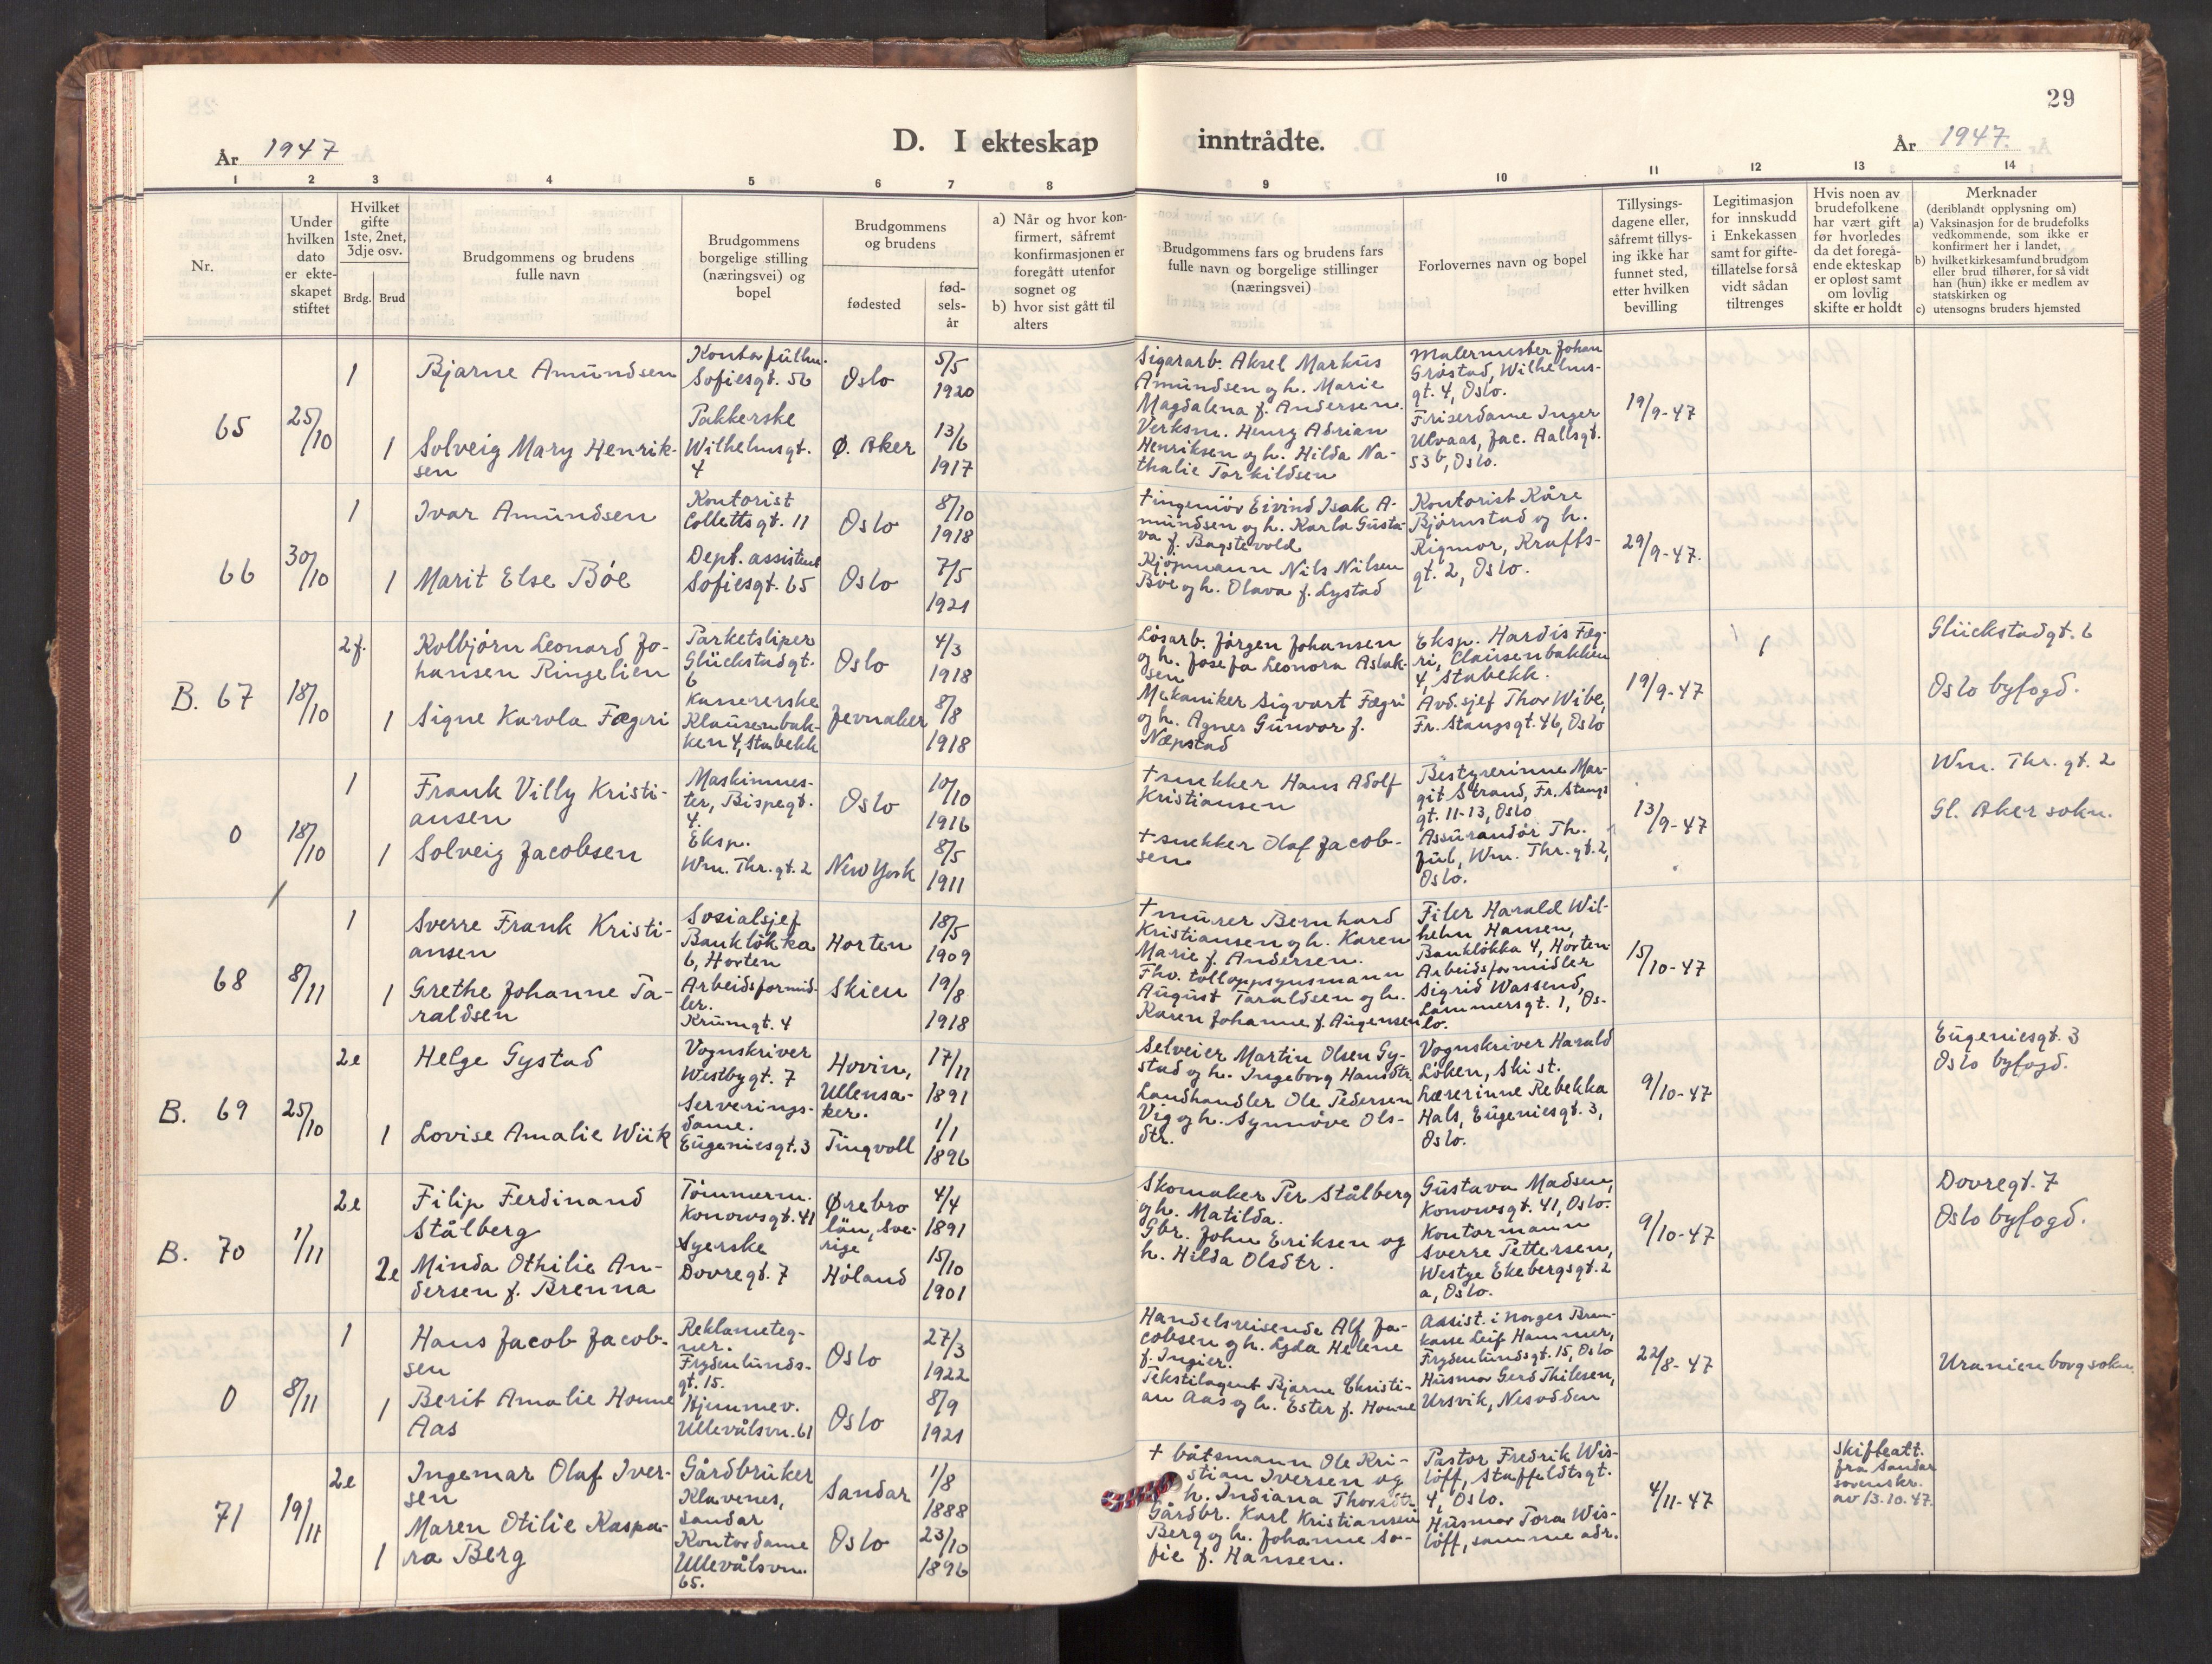 29
År 1947
D. I ekteskap inntrådte.
År 1947.
1 2 3 4 5 6 7 8 9 10 11 12 13 14
Nr.
Under hvilken dato er ekteskapet stiftet
Hvilket gifte 1ste, 2net, 3dje osv.
Brdg. Brud
Brudgommens og brudens fulle navn
Brudgommens borgelige stilling (næringsvei) og bopel
Brudgommens og brudens
fødested
fødselsår
a) Når og hvor konfirmert, såfremt konfirmasjonen er foregått utenfor sognet og
b) hvor sist gått til alters
Brudgommens fars og brudens fars fulle navn og borgelige stillinger (næringsvei)
Forlovernes navn og bopel
Tillysingsdagene eller, såfremt tillysing ikke har funnet sted, etter hvilken bevilling
Legitimasjon for innskudd i Enkekassen samt for giftetillatelse for så vidt sådan tiltrenges
Hvis noen av brudefolkene har vært gift før hvorledes da det foregående ekteskap er opløst samt om lovlig skifte er holdt
Merknader
(deriblandt opplysning om)
a) Vaksinasjon for de brudefolks vedkommende, som ikke er konfirmert her i landet,
b) hvilket kirkesamfund brudgom eller brud tilhører, for så vidt han (hun) ikke er medlem av statskirken og
c) utensogns bruders hjemsted
65
25/10
1
Bjarne Amundsen
Sofiesgt. 56
Oslo
5/5
1920
Sigararb. Aksel Markus
Amundsen og h. Marie
Magdalena f. Andersen.
Malermester Johan
Grøstad, Wilhelms-
gt. 4, Oslo.
19/9-47
1
Solveig Mary Henrik-
sen
Pakkerske
Wilhelmsgt.
4
Ø. Aker
13/6
1917
Verksm. Henry Adrian
Henriksen og h. Hilda Na-
thalie Torkildsen
Friserdame Inger
Ulvaas, Jac. Aallsgt.
53b, Oslo.
66
30/10
1
Ivar Amundsen
Kontorist
Collettsgt. 11
Oslo
8/10
1918
+ingeniør Eivind Isak A-
mundsen og h. Karla Gusta-
va f. Bagstevold
Kontorist Kåre
Bjørnstad og h.
Rigmor, Krafts-
gt. 2, Oslo.
29/9-47.
1
Marit Else Bøe
Dept. assistent
Sofiesgt. 65
Oslo
7/5
1921
Kjøpmann Nils Nilsen
Bøe og h. Olava f. Lystad
B. 67
18/10
2f.
Kolbjørn Leonard Jo-
hansen Ringelien
Parketsliper
Glückstadgt.
6
Oslo
4/3
1918
Løsarb. Jørgen Johansen
og h. Josefa Leonora Aslak-
sen
Eksp. Hardis Fæg-
ri, Clausenbakken
4, Stabekk.
19/9-47
1
Glückstadgt. 6
Oslo byfogd.
1
Signe Karola Fægri
Kassererske
Klausenbak-
ken 4, Stabekk
Jevnaker
8/8
1918
Mekaniker Sigvart Fægri
og h. Agnes Gunvor f.
Næpstad
Avd.sjef Thor Wibe,
Fr. Stangsgt. 46, Oslo
0
18/10
1
Frank Villy Kristi-
ansen
Maskinmes-
ter, Bispegt.
4.
Oslo
10/10
1916
+snekker Hans Adolf
Kristiansen
Bestyrerinne Mar-
git Strand, Fr. Stangs
gt. 11-13, Oslo
13/9-47
Wm. Thr. gt. 2
Gl. Aker sokn.
1
Solveig Jacobsen
Eksp.
Wm. Thr. gt. 2
New York
8/5
1911
+snekker Olaf Jacob-
sen
Assurandør Th.
Juul, Wm. Thr. gt. 2,
Oslo.
68
8/11
1
Sverre Frank Kristi-
ansen
Sosialsjef
Bankløkka
6, Horten
Horten
18/5
1909
+murer Bernhard
Kristiansen og h. Karen
Marie f. Andersen.
Filer Harald Wil-
helm Hansen,
Bankløkka 4, Horten
15/10-47
1
Grethe Johanne Ta-
raldsen
Arbeidsformid-
ler.
Krumgt. 4
Skien
19/8
1918
Fhv. tolloppsynsmann
August Taraldsen og h.
Karen Johanne f. Augensen
Arbeidsformidler
Sigrid Wassend,
Lammersgt. 1, Os-
lo.
B. 69
25/10
2e
Helge Gystad
Vognskriver
Westbygt. 7
Hovin,
Ullensa-
ker.
17/11
1891
Selveier Martin Olsen Gy-
stad og h. Ingeborg Hansdtr.
Vognskriver Harald
Løken, Ski st.
9/10-47
Eugeniesgt. 3
Oslo byfogd.
1
Lovise Amalie Wiik
Serverings-
dame.
Eugeniesgt. 3
Tingvoll
1/1
1896
Landhandler Ole Pedersen
Vig og h. Synnøve Ols-
dtr.
Lærerinne Rebekka
Hals, Eugeniesgt. 3,
Oslo.
B. 70
1/11
2e
Filip Ferdinand
Stålberg
Tømmerm.
Konowsgt. 41
Ørebro
län, Sve-
rige
4/4
1891
Skomaker Per Stålberg
og h. Matilda.
Gustava Madsen,
Konowsgt. 41, Oslo.
9/10-47
Dovregt. 7
Oslo byfogd.
2e
Minda Othilie An-
dersen f. Brenna
Syerske
Dovregt. 7
Høland
15/10
1901
Gbr. John Eriksen og
h. Hilda Olsdtr.
Kontormann
Sverre Pettersen,
Westye Ekebergsgt. 2
a, Oslo.
0
8/11
1
Hans Jacob Jacob-
sen
Reklameteg-
ner.
Frydenlunds-
gt. 15.
Oslo
27/3
1922
Handelsreisende Alf Ja-
cobsen og h. Lyda Helene
f. Ingier.
Assist. i Norges Bran-
kasse Leif Hammer,
Frydenlundsgt. 15, Oslo
22/8-47
Uranienborg sokn.
1
Berit Amalie Honne
Aas
Hjemmev.
Ullevålsvn. 61
Oslo
8/9
1921
Tekstilagent Bjarne Christi-
an Aas og h. Ester f. Honne
Husmor Gerd Thilesen,
Ursvik, Nesodden
71
19/11
2e
Ingemar Olaf Iver-
sen
Gårdbruker
Klavenes,
Sandar
Sandar
1/8
1888
+ båtsmann Ole Kri-
stian Iversen og
h. Indiana Thorsdtr.
Pastor Fredrik Wis-
løff, Staffeldtsgt.
4, Oslo.
4/11-47
Skifteatt.
fra Sandar
sorenskr.
av 13.10.47.
1
Maren Otilie Kaspa-
ra Berg
Kontordame
Ullevålsvn.
65.
Oslo
23/10
1896
Gårdbr. Karl Kristiansen
Berg og h. Johanne So-
fie f. Hansen.
Husmor Tora Wis-
løff, samme adr.